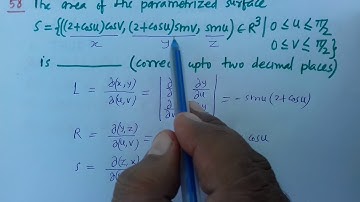 58 The area of the parametrized surface
S = {((2+cosu)cosv, (2+cosu)sinv, sinu) ∈ R³ | 0 ≤ u ≤ π/2
x y z 0 ≤ v ≤ π/2}
is ________ (correct upto two decimal places)
L = ∂(x,y)/∂(u,v) = ∂y/∂u = -sinu(2+cosu)
R = ∂(y,z)/∂(u,v) = cosu
S = ∂(z,x)